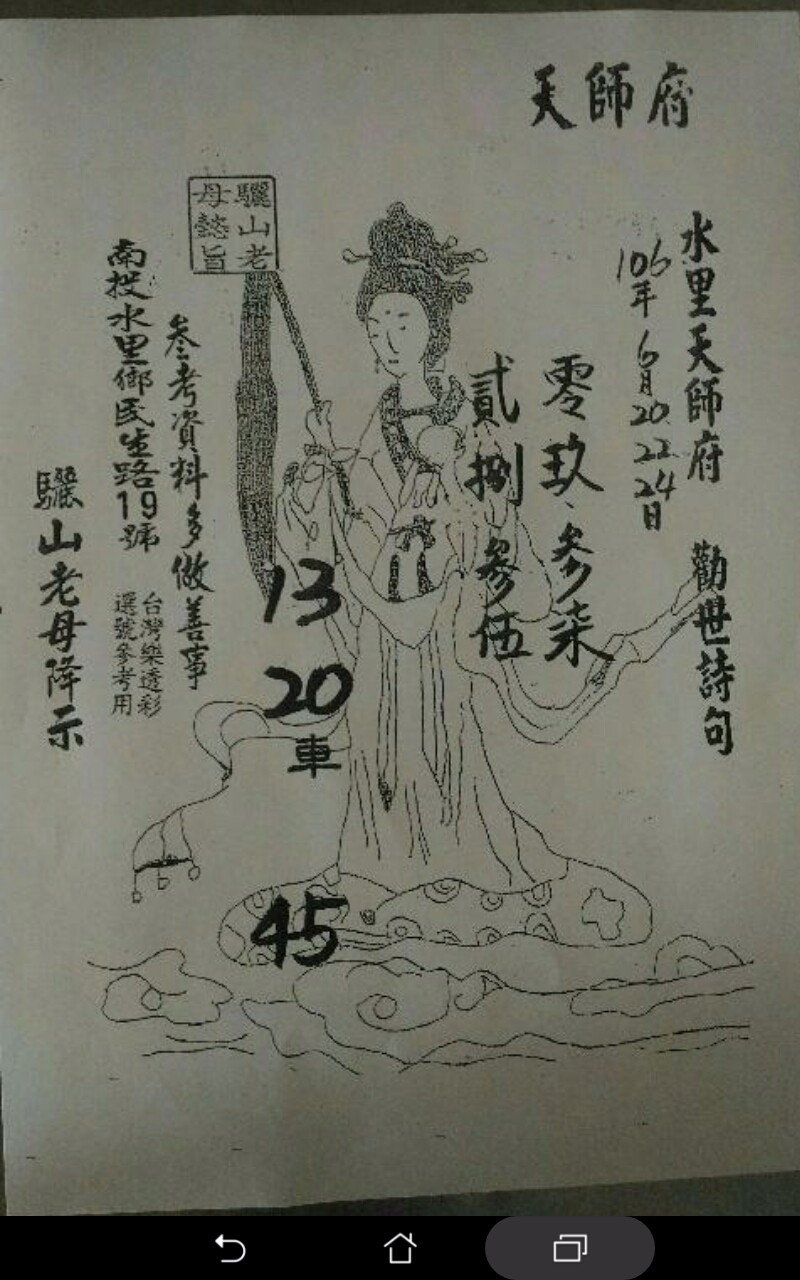 天師府
水里天師府 勸世詩句
106年 6月20.22.24日
零玖、參柒
貳捌 參伍
驪山老
母懿旨
13
20
車
45
參考資料多做善事
台灣樂透彩
選號參考用
南投水里鄉民生路19號
驪山老母降示